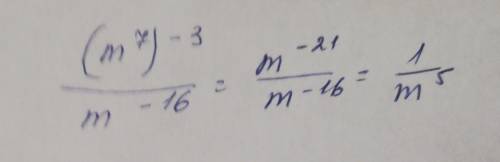 (m⁷)⁻³ / m⁻¹⁶ = m⁻²¹ / m⁻¹⁶ = 1 / m⁵